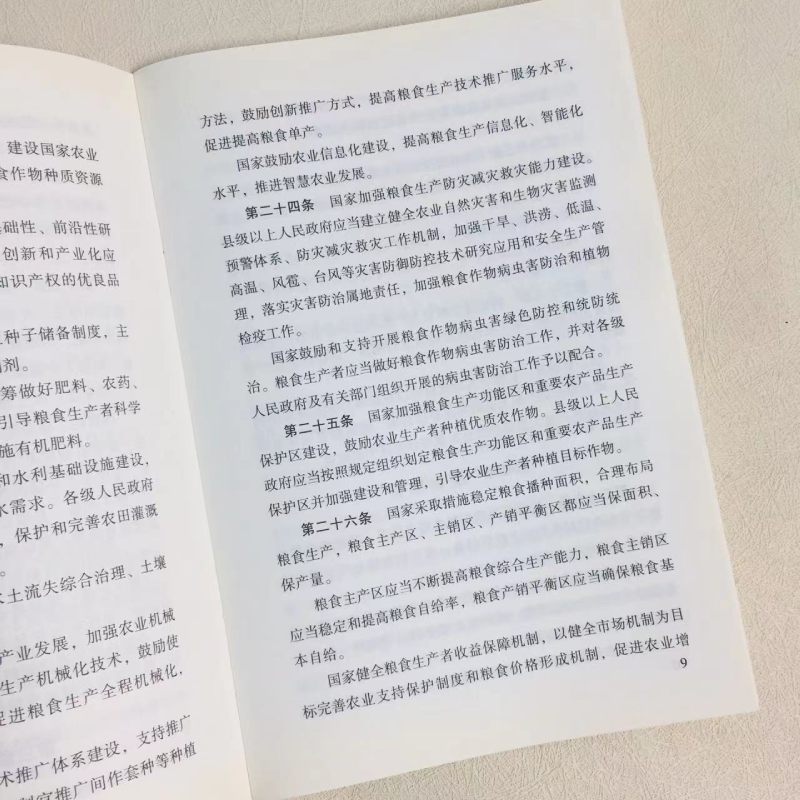 建设国家农业
食作物种质资源
基础性、前沿性研
创新和产业化应
知识产权的优良品
种子储备制度，主
剂。
筹做好肥料、农药、
引导粮食生产者科学
施有机肥料。
和水利基础设施建设，
水需求。各级人民政府
，保护和完善农田灌溉
水土流失综合治理、土壤
产业发展，加强农业机械
生产机械化技术，鼓励使
促进粮食生产全程机械化，
术推广体系建设，支持推广
制宜推广间作套种等种植
方法，鼓励创新推广方式，提高粮食生产技术推广服务水平，
促进提高粮食单产。
国家鼓励农业信息化建设，提高粮食生产信息化、智能化
水平，推进智慧农业发展。
第二十四条 国家加强粮食生产防灾减灾救灾能力建设。
县级以上人民政府应当建立健全农业自然灾害和生物灾害监测
预警体系、防灾减灾救灾工作机制，加强干旱、洪涝、低温、
高温、风雹、台风等灾害防御防控技术研究应用和安全生产管
理，落实灾害防治属地责任，加强粮食作物病虫害防治和植物
检疫工作。
国家鼓励和支持开展粮食作物病虫害绿色防控和统防统
治。粮食生产者应当做好粮食作物病虫害防治工作，并对各级
人民政府及有关部门组织开展的病虫害防治工作予以配合。
第二十五条 国家加强粮食生产功能区和重要农产品生产
保护区建设，鼓励农业生产者种植优质农作物。县级以上人民
政府应当按照规定组织划定粮食生产功能区和重要农产品生产
保护区并加强建设和管理，引导农业生产者种植目标作物。
第二十六条 国家采取措施稳定粮食播种面积，合理布局
粮食生产，粮食主产区、主销区、产销平衡区都应当保面积、
保产量。
粮食主产区应当不断提高粮食综合生产能力，粮食主销区
应当稳定和提高粮食自给率，粮食产销平衡区应当确保粮食基
本自给。
国家健全粮食生产者收益保障机制，以健全市场机制为目
标完善农业支持保护制度和粮食价格形成机制，促进农业增
9